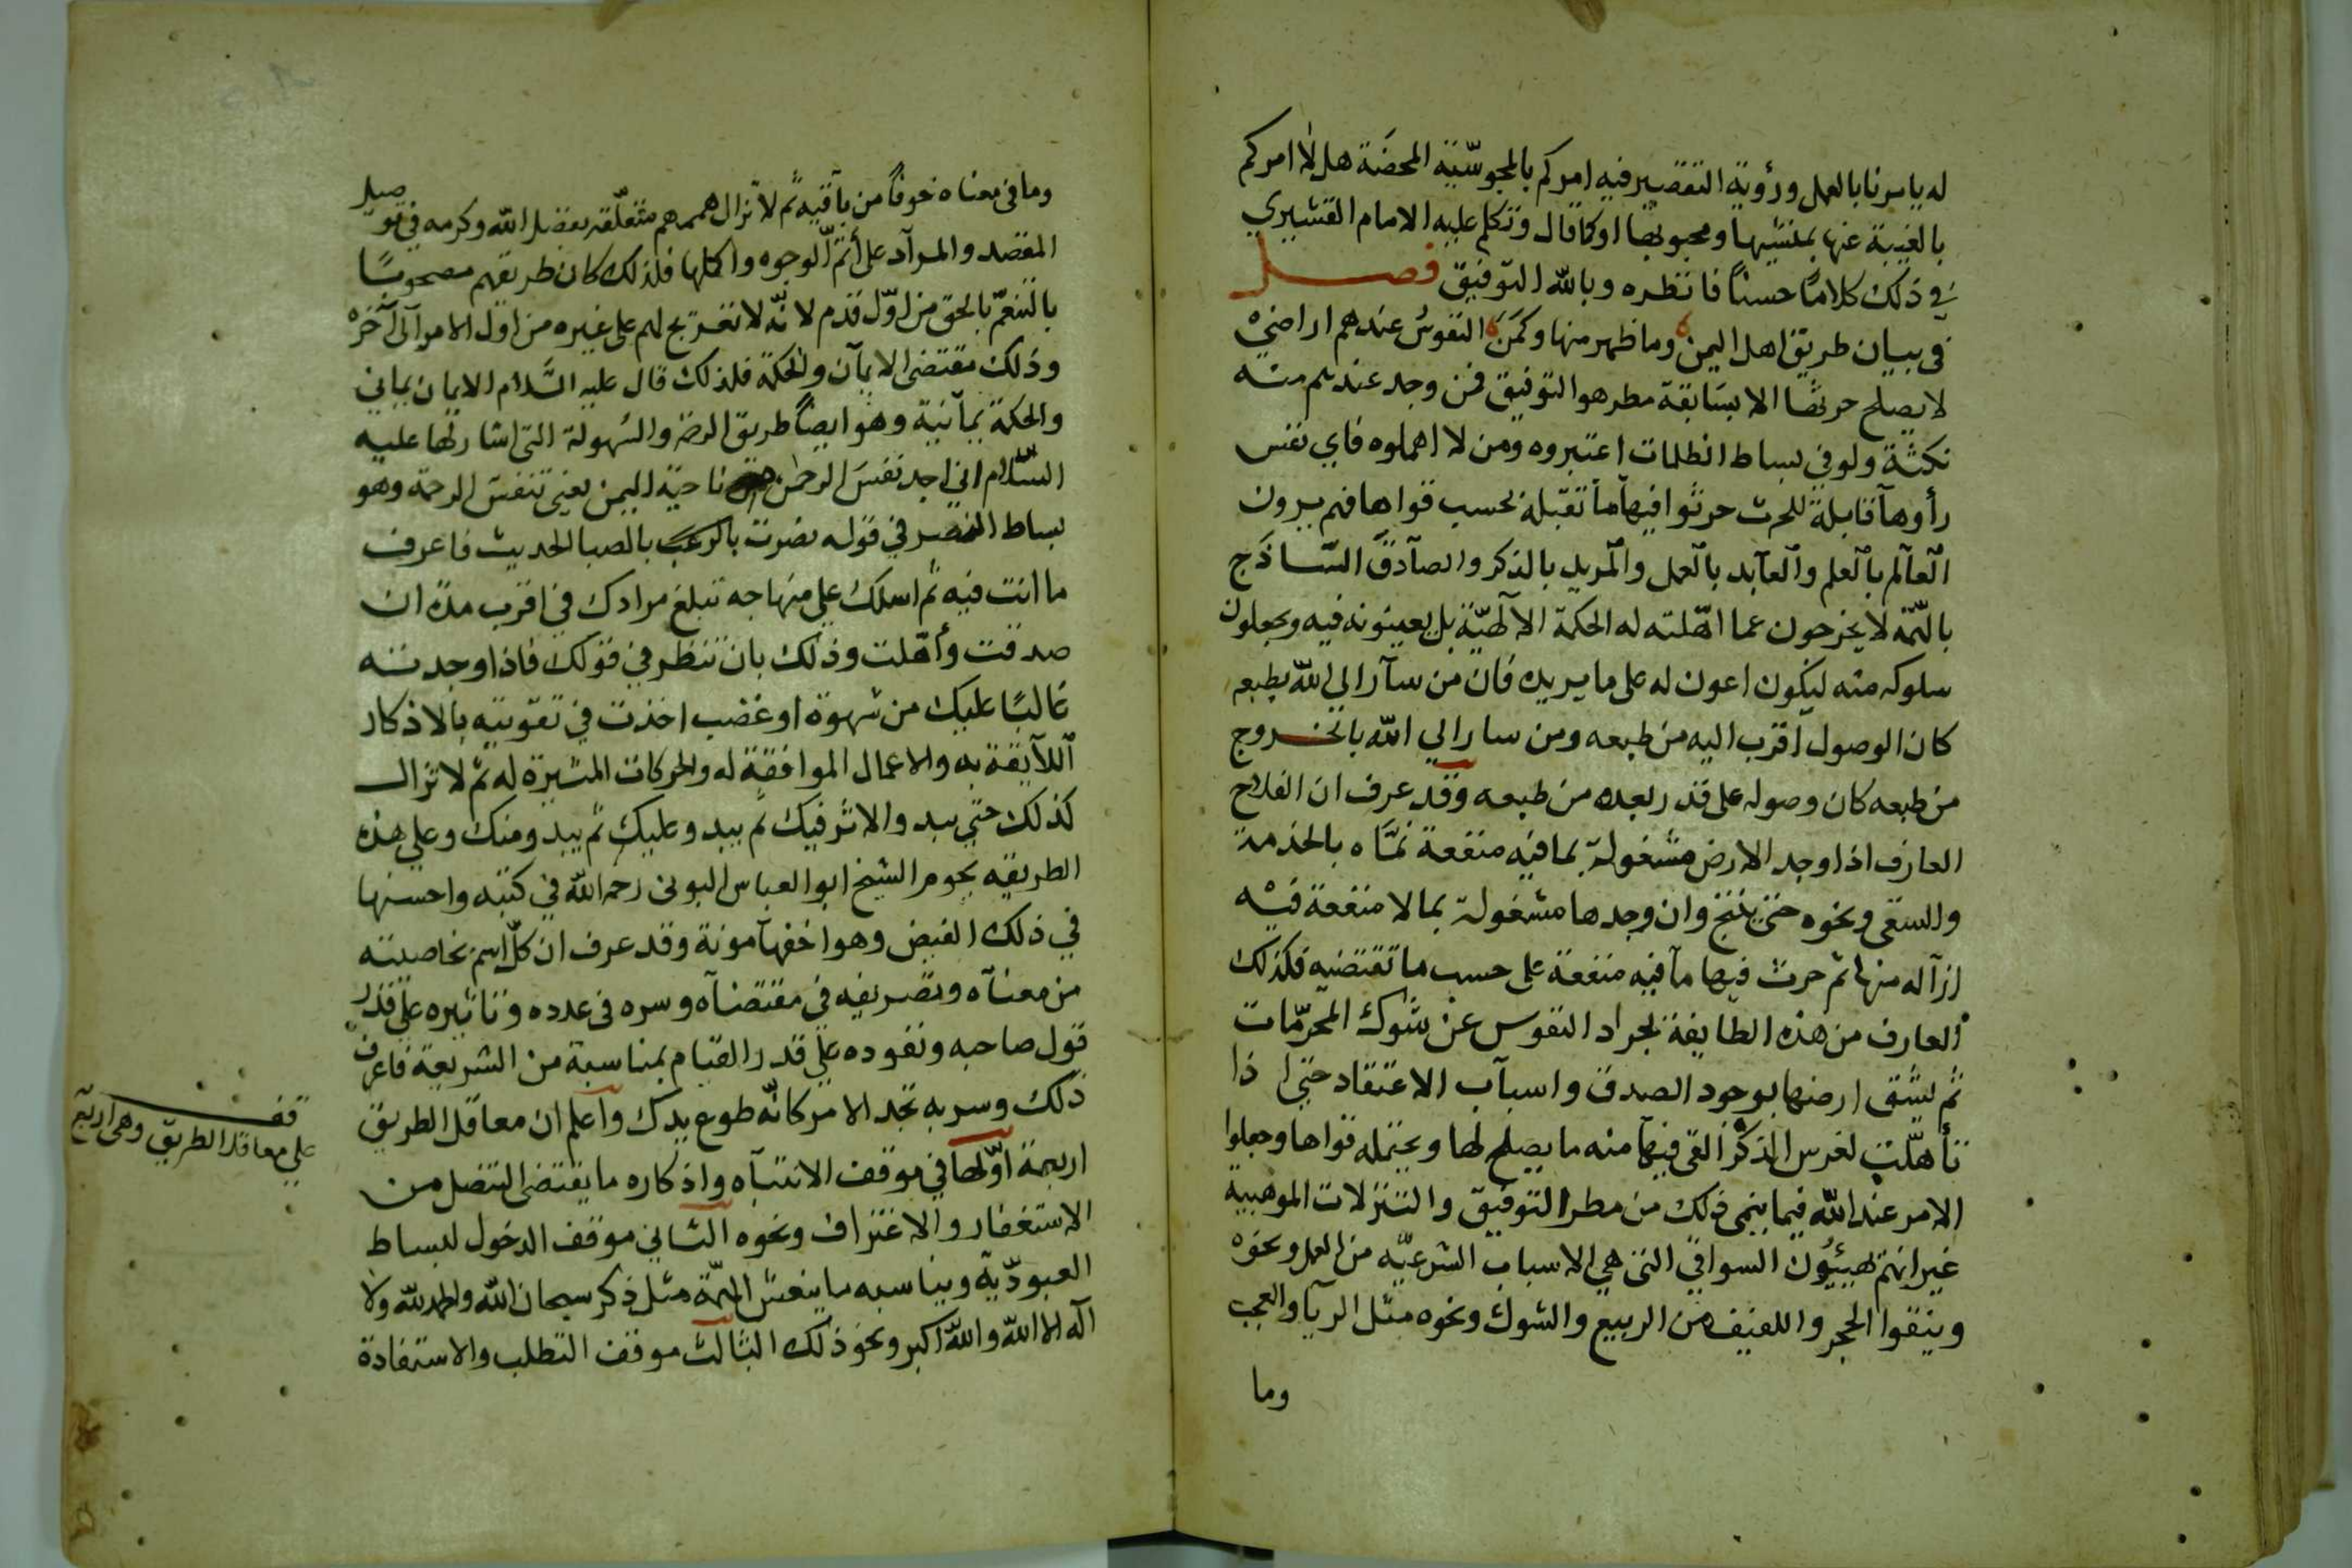 له يأمرنا بالعمل ورؤية التقصير فيه امركم بالمجوسّية المحضة هلّا امركم
بالغيبة عنها بمنشيها ومجريها او كما قال وتكلم عليه الامام القشيري
في ذلك كلامًا حسنًا فانظره وبالله التوفيق فصل
في بيان طريق اهل اليمن وما ظهر منها وكمن النفوسُ عندهم اراضيْ
لا يصلح حرثها الا بسَابقة مطر هو التوفيق فمن وجد عندهم منه
نكتة ولو في بساط الظلمات اعتبروه ومن لا اهملوه فاي نفس
رأوها قابلة للحرث حرثوا فيها ما تقبله بحسب قواها فهم يرون
العالم بالعلم والعابد بالعمل والمريد بالذكر والصادق السّاذج
بالهمّة لا يخرجون عما اهّلته له الحكمة الالهيّة بل يعينونه فيه ويجعلون
سلوكه منه ليكون اعون له على ما يريده فان من سار الي الله بطبعه
كان الوصول اقرب اليه من طبعه ومن سار الي الله بالخروج
من طبعه كان وصوله على قدر بعده من طبعه وقد عرف ان الفلاح
العارف اذا وجد الارض مشغولة بما فيه منفعة نمّاه بالخدمة
والسقي ونحوه حتى ينتج وان وجدها مشغولة بما لا منفعة فيه
ازاله منها ثم حرث فيها ما فيه منفعة على حسب ما تقتضيه فكذلك
العارف من هذه الطايفة يجراد النفوس عن شوك المحرّمات
ثم يشق ارضها بوجود الصدق واسباب الاعتقاد حتى اذا
تأهلّت لغرس الذكر القى فيها منه ما يصلح لها ويحتمله قواها وجعلوا
الامر عند الله فيما ينمى ذلك من مطر التوفيق والتنزلات الموهبية
غير انهم يهيئون السواقي التى هي الاسباب الشرعيّه من العمل ونحوه
وينقوا الحجر واللفيف من الربيع والشوك ونحوه مثل الريا والعجب
وما
وما في معناه خوفًا من باقيه ثم لا تزال هممهم متعلّقة بفضل الله وكرمه في توصيل
المقصد والمراد على أتم الوجوه واكملها فلذلك كان طريقهم مصحوبًا
بالتنعّم بالحق من اوّل قدم لانّه لا تعريج لهم على غيره من اول الامر الى آخره
وذلك مقتضى الايمان والحكمة فلذلك قال عليه السّلام الايمان يمانى
والحكمة يمانية وهو ايضًا طريق الرضى والسُهولة التى اشار لها عليه
السّلام اني اجد نفسَ الرحمٰن من ناحية اليمن يعنى تنفس الرحمة وهو
بساط النصر في قوله نصرت بالرعب بالصبا الحديث فاعرف
ما انت فيه ثم اسلك علي منهاجه تبلغ مرادك في اقرب مدّة ان
صدقت وأهّلت وذلك بان تنظر في قولك فاذا وجدته
غالبًا عليك من شهوة او غضب اخذت في تقويته بالاذكار
اللايقة به والاعمال الموافقة له والحركات المشيرة له ثم لا تزال
كذلك حتي يبدو الاثر فيك ثم يبدو عليك ثم يبدو منك وعلي هذه
الطريقه يحوم الشيخ ابو العباس البونى رحمه الله في كتبه واحسنها
في ذلك القبض وهو اخفها مونة وقد عرف ان كلّ اسم خاصيته
من معناه وتصريفه في مقتضاه وسره فى عدده وتاثيره علي قدر
قول صاحبه ونفوده علي قدر القيام بمناسبة من الشريعة فاعرف
ذلك وسر به تجد الامر كانّه طوع يدك واعلم ان معاقل الطريق
اربعة اوّلها في موقف الانتباه واذكاره ما يقتضى التنصل من
الاستغفار والاعتراف ونحوه الثاني موقف الدخول لبساط
العبوديّة ويناسبه ما ينعش الهمّة مثل ذكر سبحان الله والحمد لله ولا
اله الا الله والله اكبر ونحو ذلك الثالث موقف التطلب والاستفادة
قف
علي معاقل الطريق وهى اربع